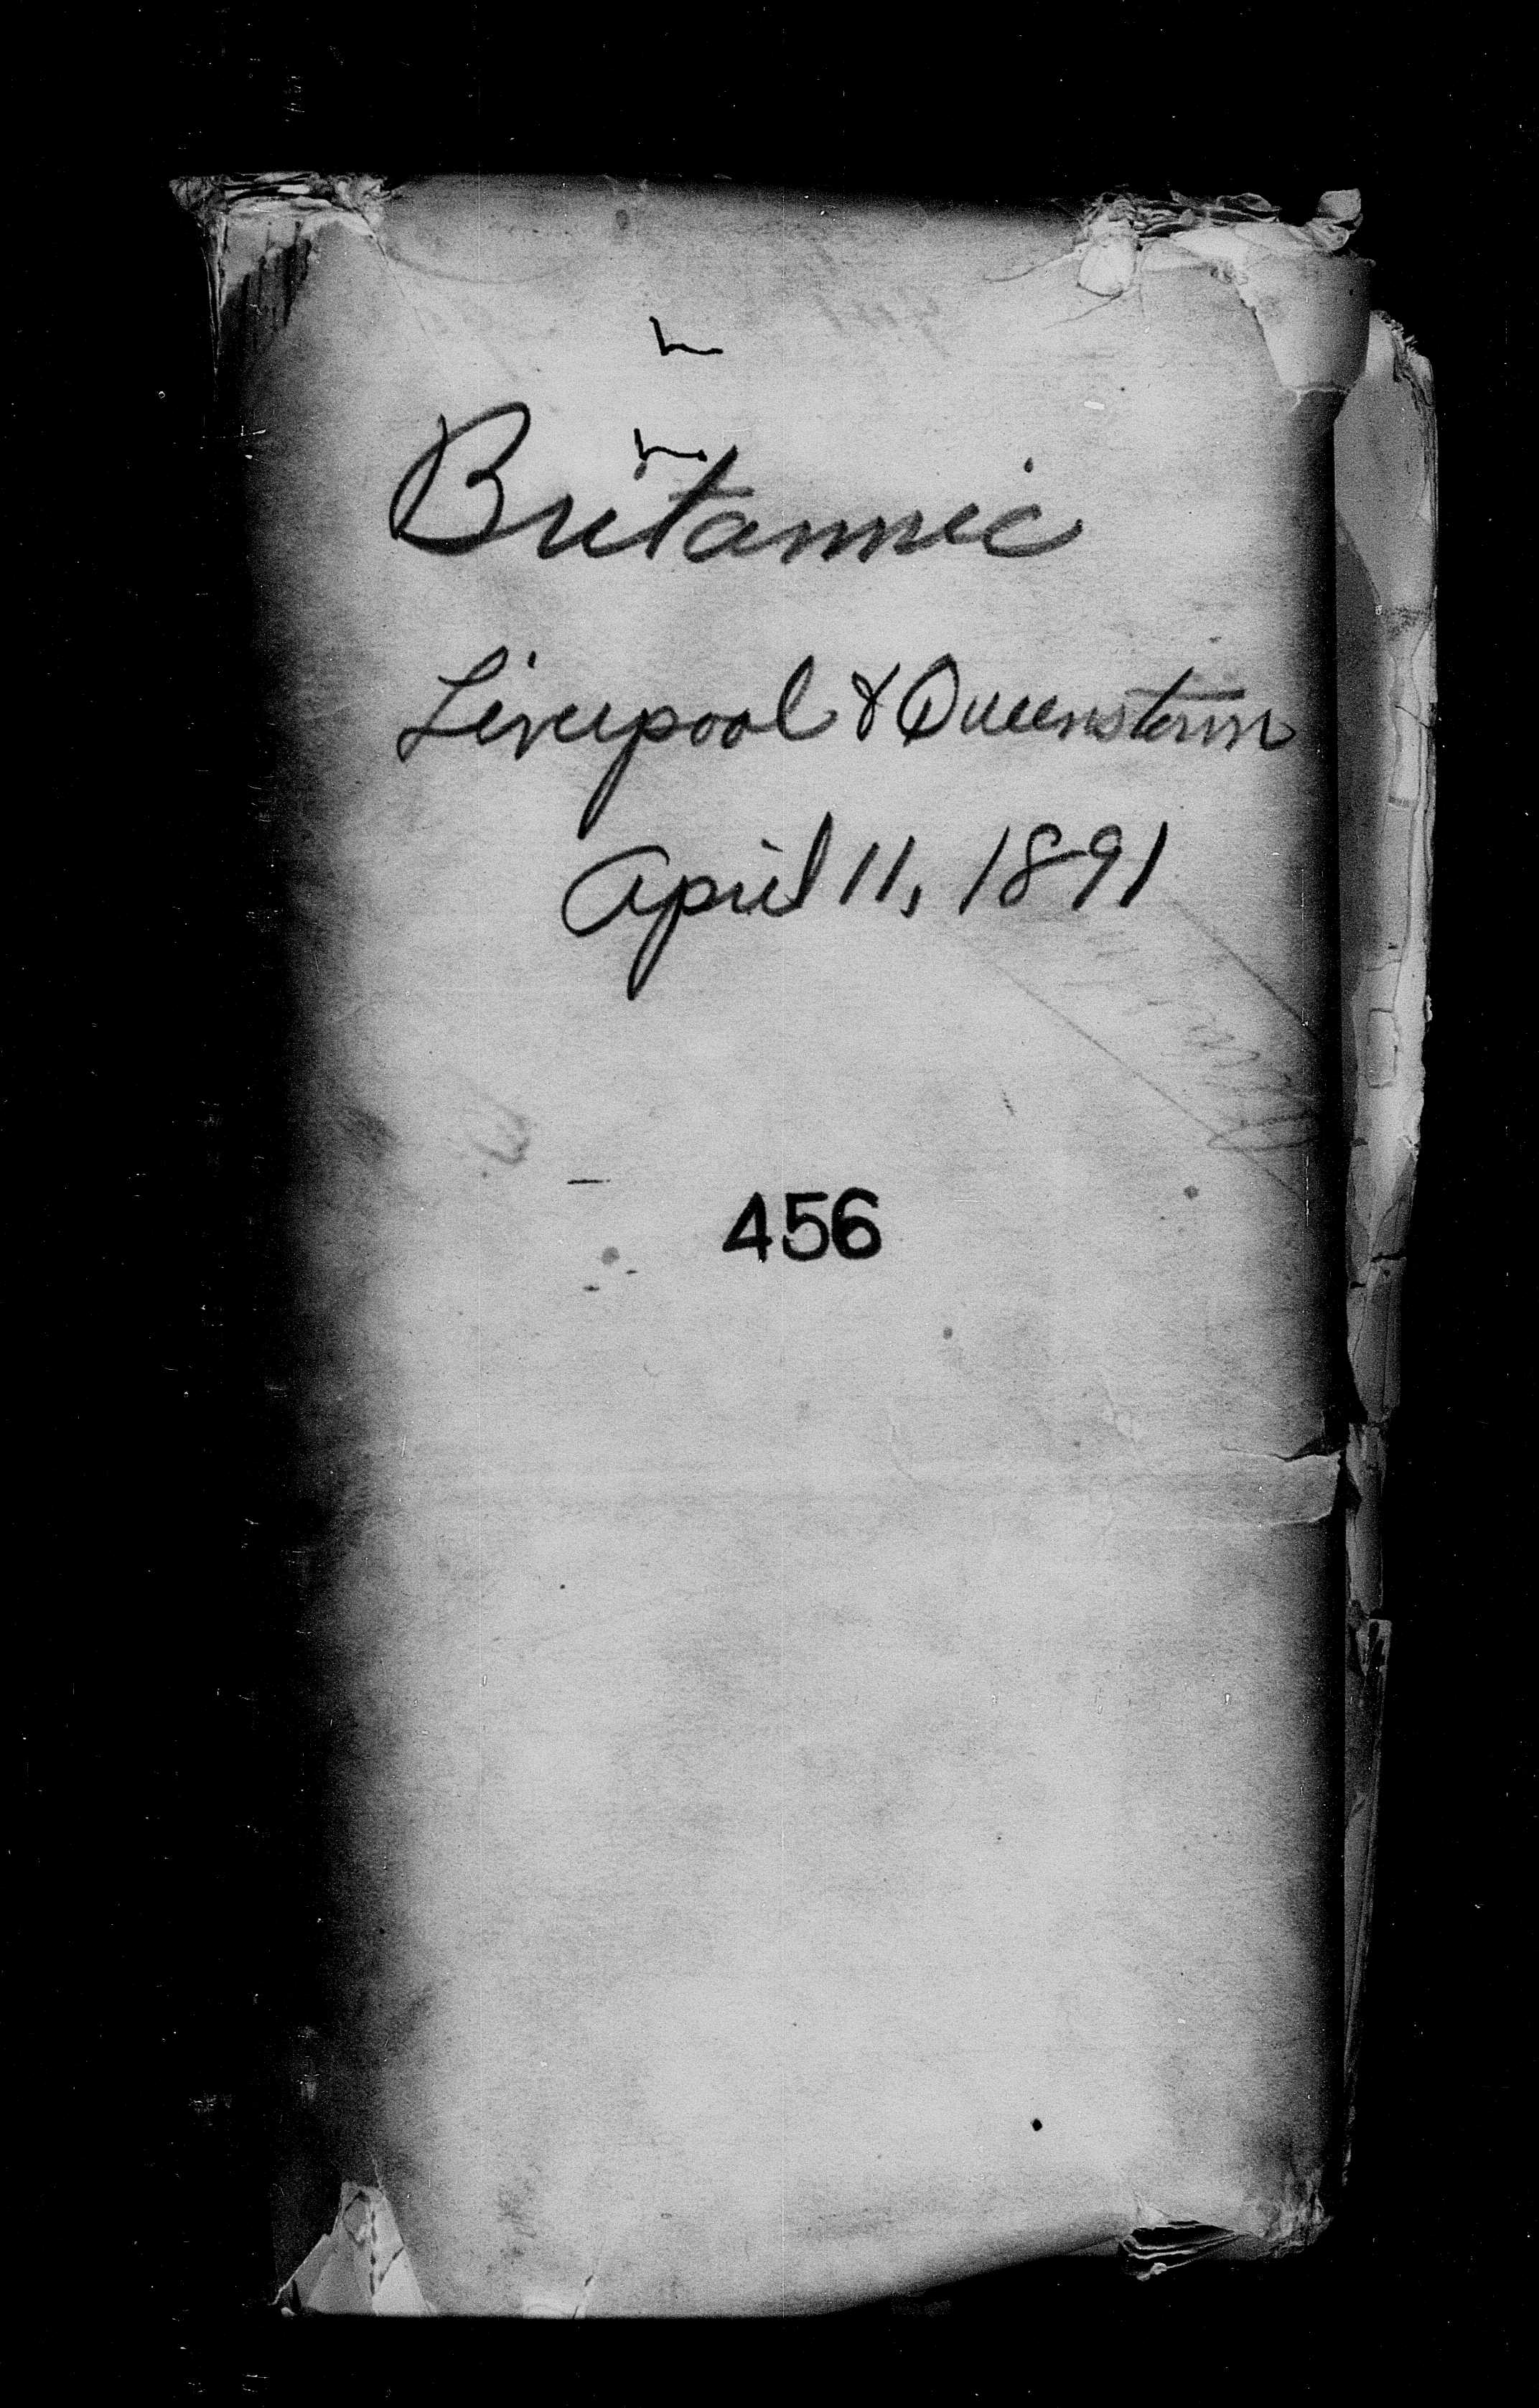 Britannic
Liverpool & Queenstown
April 11, 1891
456